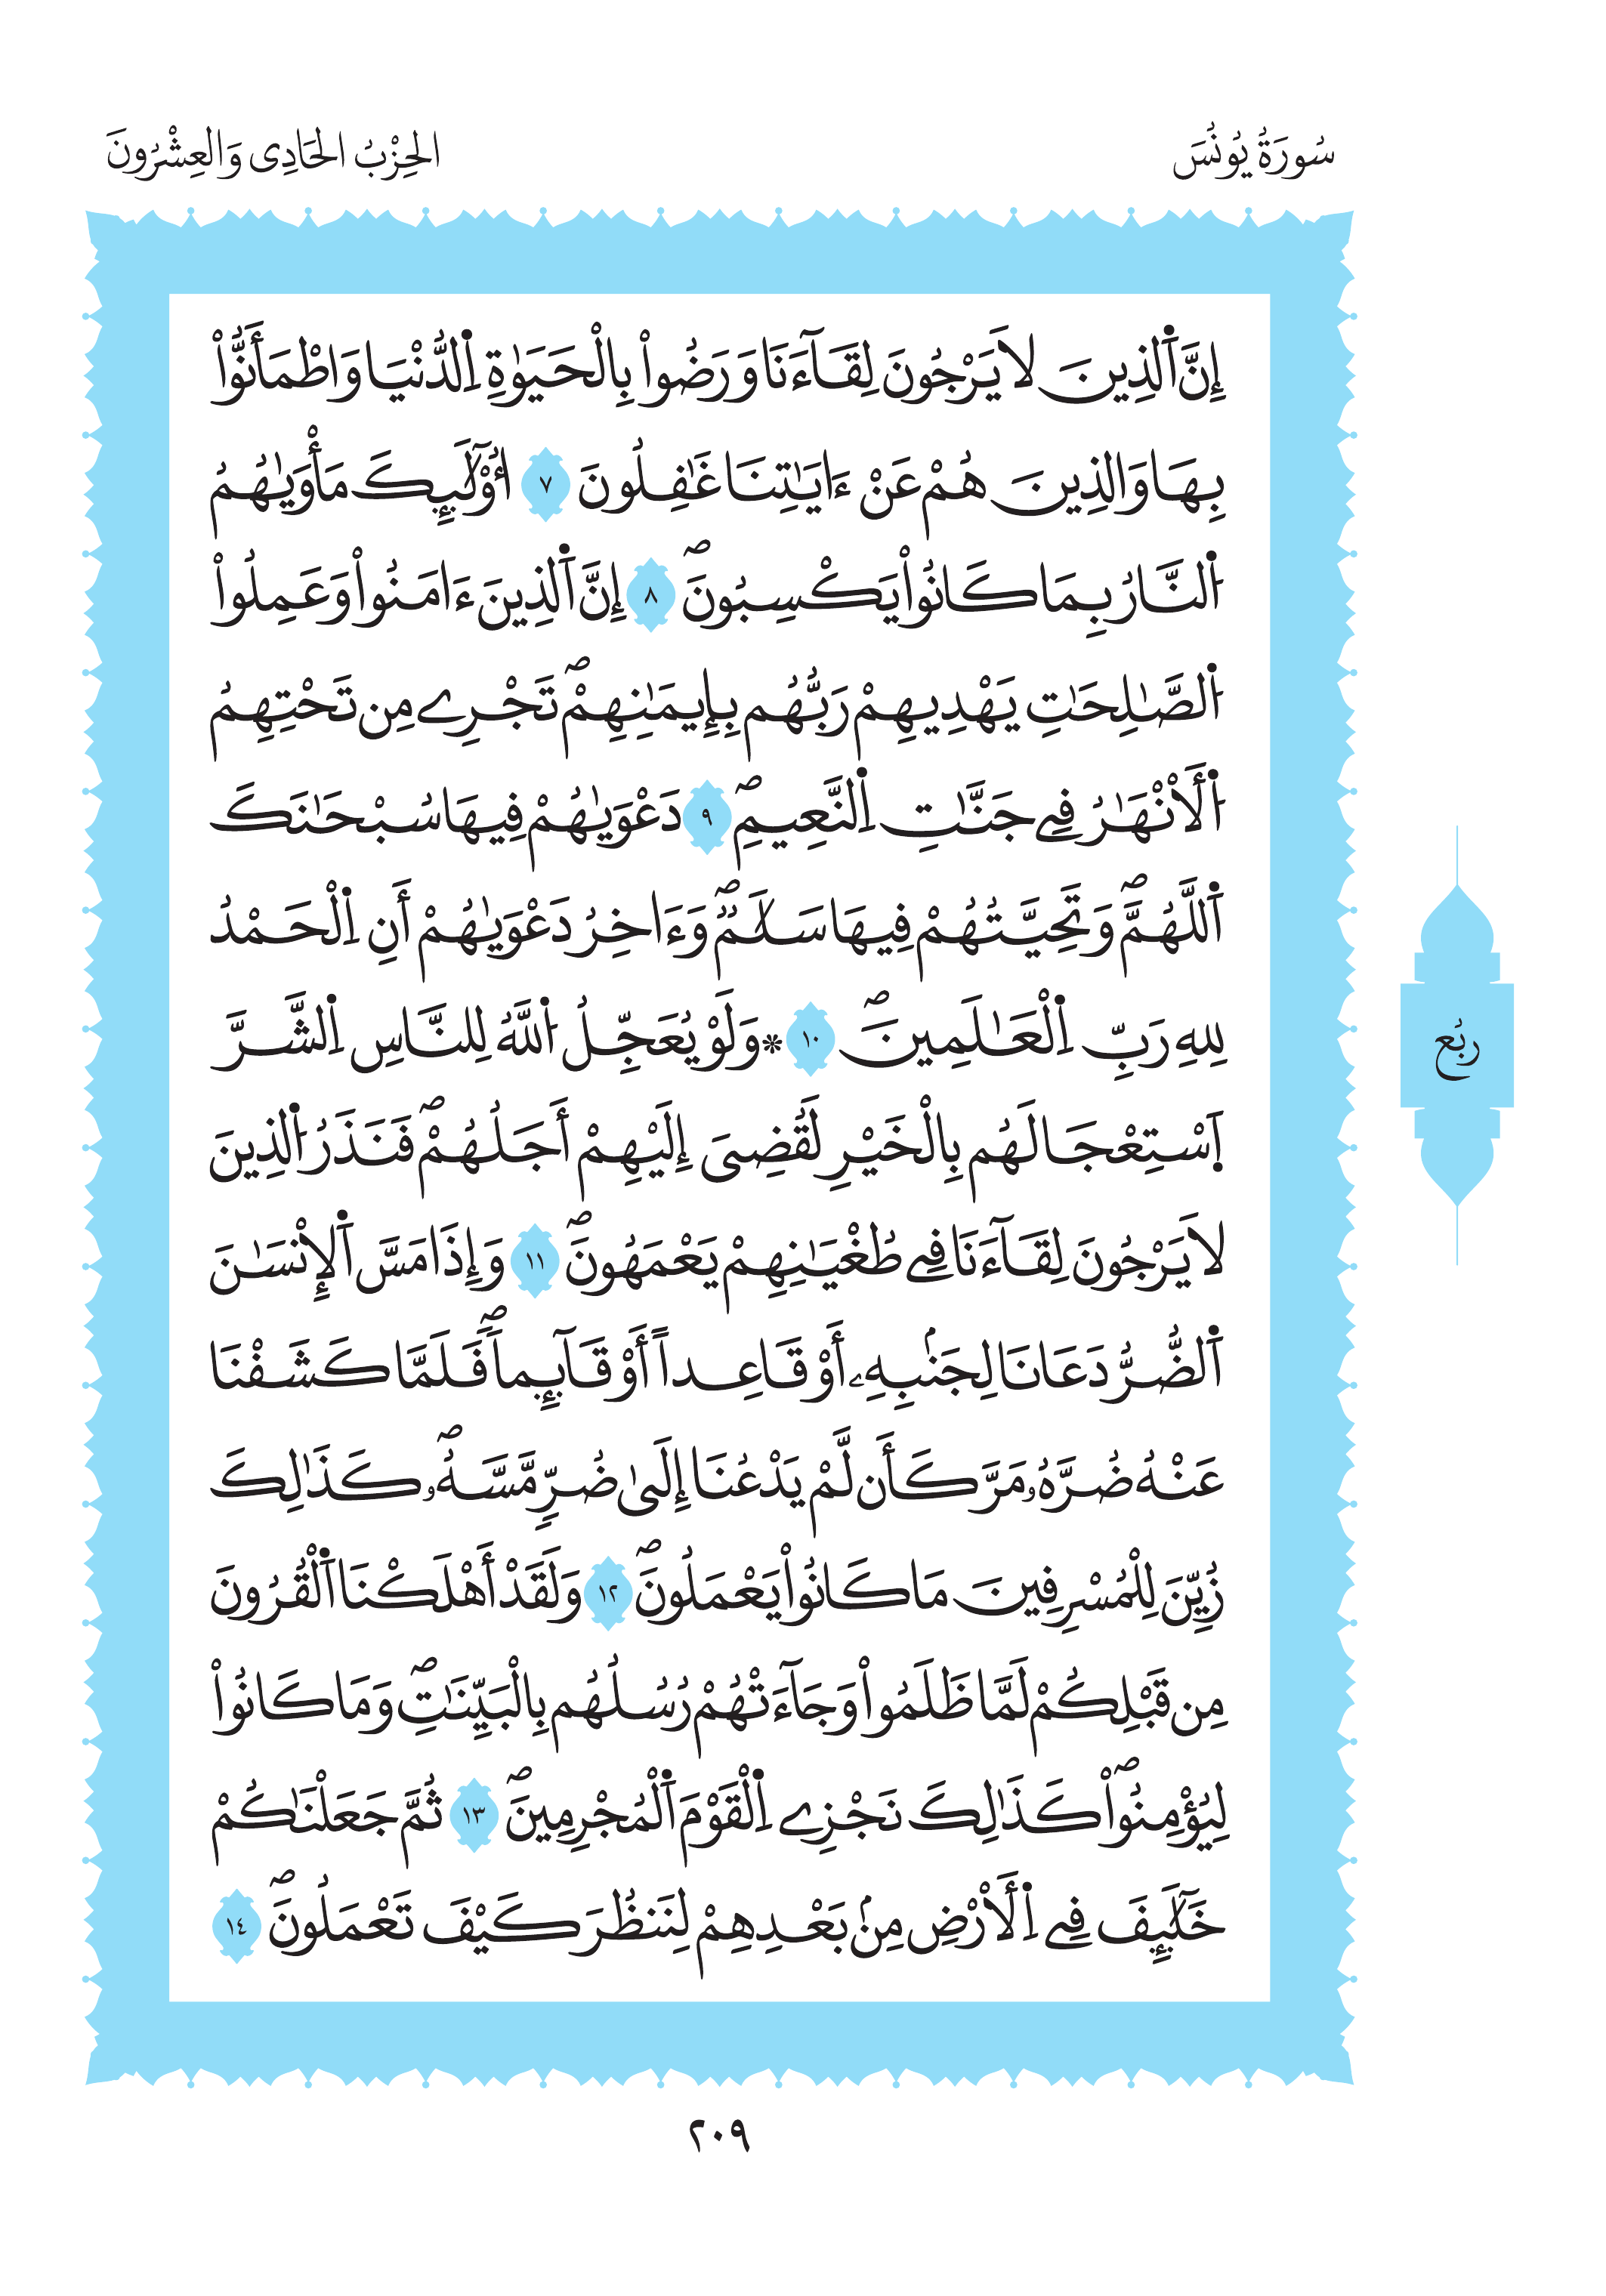 سُورَةُ يُونُسَ
الحِزْبُ الحَادِى وَالعِشْرُونَ
إِنَّ اَ۬لذِينَ لَا يَرْجُونَ لِقَآءَنَا وَرَضُواْ بِالْحَيَوٰةِ اِ۬لدُّنْيَا وَاطْمَأَنُّواْ
بِهَا وَالذِينَ هُمْ عَنْ ءَايَٰتِنَا غَٰفِلُونَ ٧ أُوْلَٰٓئِكَ مَأْوَيٰهُمُ
اُ۬لنَّارُ بِمَا كَانُواْ يَكْسِبُونَۖ ٨ إِنَّ اَ۬لذِينَ ءَامَنُواْ وَعَمِلُواْ
اُ۬لصَّٰلِحَٰتِ يَهْدِيهِمْ رَبُّهُم بِإِيمَٰنِهِمْۖ تَجْرِے مِن تَحْتِهِمُ
اُ۬لْأَنْهَٰرُ فِے جَنَّٰتِ اِ۬لنَّعِيمِۖ ٩ دَعْوَيٰهُمْ فِيهَا سُبْحَٰنَكَ
اَ۬للَّهُمَّۖ وَتَحِيَّتُهُمْ فِيهَا سَلَٰمٞۖ وَءَاخِرُ دَعْوَيٰهُمْ أَنِ اِ۬لْحَمْدُ
لِلهِ رَبِّ اِ۬لْعَٰلَمِينَۖ ١٠ ۞وَلَوْ يُعَجِّلُ اُ۬للَّهُ لِلنَّاسِ اِ۬لشَّرَّ
اَ۪سْتِعْجَالَهُم بِالْخَيْرِ لَقُضِىَ إِلَيْهِمْ أَجَلُهُمْۖ فَنَذَرُ اُ۬لذِينَ
لَا يَرْجُونَ لِقَآءَنَا فِے طُغْيَٰنِهِمْ يَعْمَهُونَۖ ١١ وَإِذَا مَسَّ اَ۬لْإِنسَٰنَ
اَ۬لضُّرُّ دَعَانَا لِجَنۢبِهِۦ أَوْ قَاعِداً أَوْ قَآئِماٗۖ فَلَمَّا كَشَفْنَا
عَنْهُ ضُرَّهُۥ مَرَّ كَأَن لَّمْ يَدْعُنَا إِلَىٰ ضُرّٖ مَّسَّهُۥۖ كَذَٰلِكَ
زُيِّنَ لِلْمُسْرِفِينَ مَا كَانُواْ يَعْمَلُونَۖ ١٢ وَلَقَدْ أَهْلَكْنَا اَ۬لْقُرُونَ
مِن قَبْلِكُمْ لَمَّا ظَلَمُواْ وَجَآءَتْهُمْ رُسُلُهُم بِالْبَيِّنَٰتِۖ وَمَا كَانُواْ
لِيُؤْمِنُواْۖ كَذَٰلِكَ نَجْزِے اِ۬لْقَوْمَ اَ۬لْمُجْرِمِينَۖ ١٣ ثُمَّ جَعَلْنَٰكُمْ
خَلَٰٓئِفَ فِے اِ۬لْأَرْضِ مِنۢ بَعْدِهِمْ لِنَنظُرَ كَيْفَ تَعْمَلُونَۖ ١٤
ربُع
٢٠٩